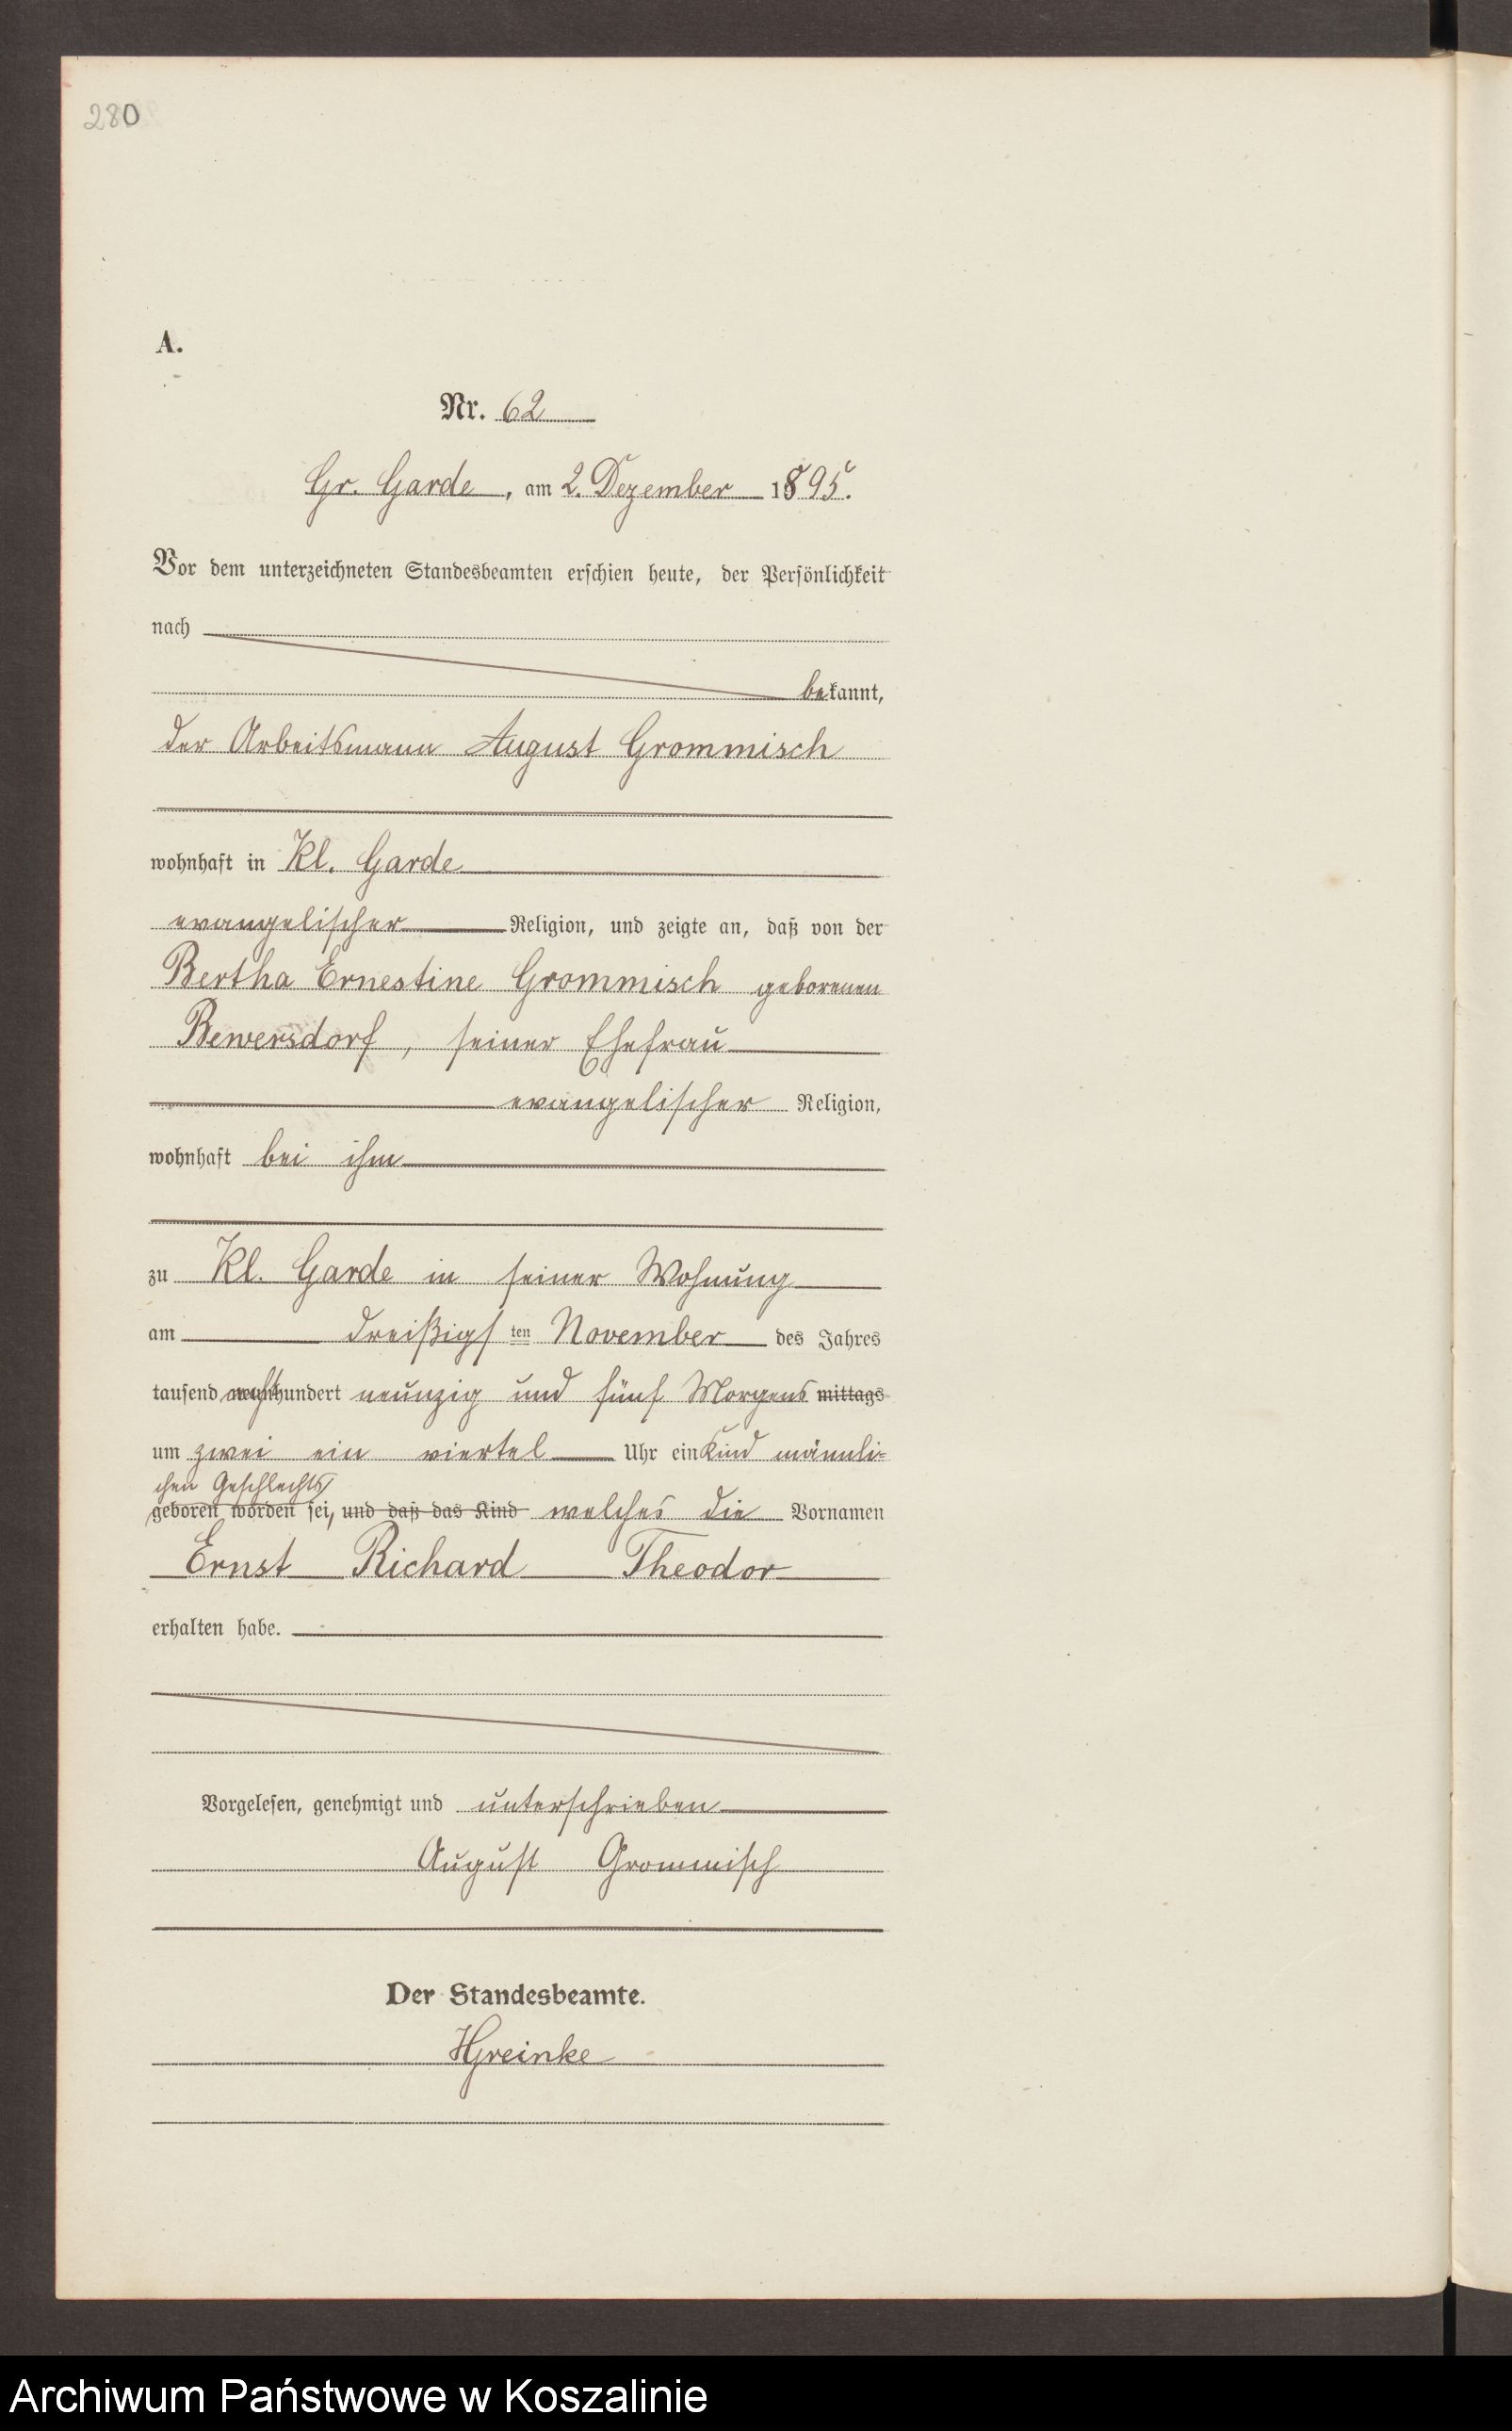 280
A.
Nr. 62
Gr. Garde, am 2. Dezember 1895.
Vor dem unterzeichneten Standesbeamten erschien heute, der Persönlichkeit
nach
bekannt,
der Arbeitsmann August Grommisch
wohnhaft in Kl. Garde
evangelischer Religion, und zeigte an, daß von der
Bertha Ernestine Grommisch geborenen
Bewersdorf, seiner Ehefrau
evangelischer Religion,
wohnhaft bei ihm
zu Kl. Garde in seiner Wohnung
am dreißigsten November des Jahres
tausend achthundert neunzig und fünf Morgens mittags
um zwei ein viertel Uhr ein Kind männli-
chen Geschlechts
geboren worden sei, und daß das Kind welches die Vornamen
Ernst Richard Theodor
erhalten habe.
Vorgelesen, genehmigt und unterschrieben
August Grommisch
Der Standesbeamte.
HGreinke
Archiwum Państwowe w Koszalinie